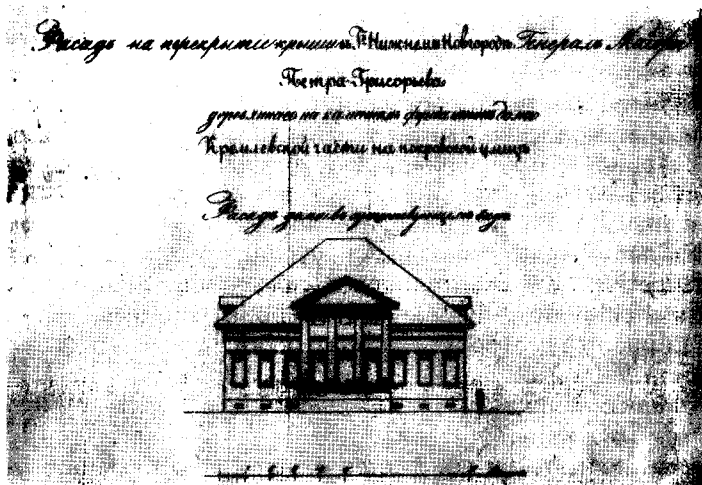 Фасадъ на перекрытіе крыши въ г. Нижнемъ Новгородѣ Генералъ Маіора
Петра Григорьева
деревяннаго на каменномъ фундаментѣ дома
Кремлевской части на покровской улицѣ
Фасадъ дома въ существующемъ видѣ